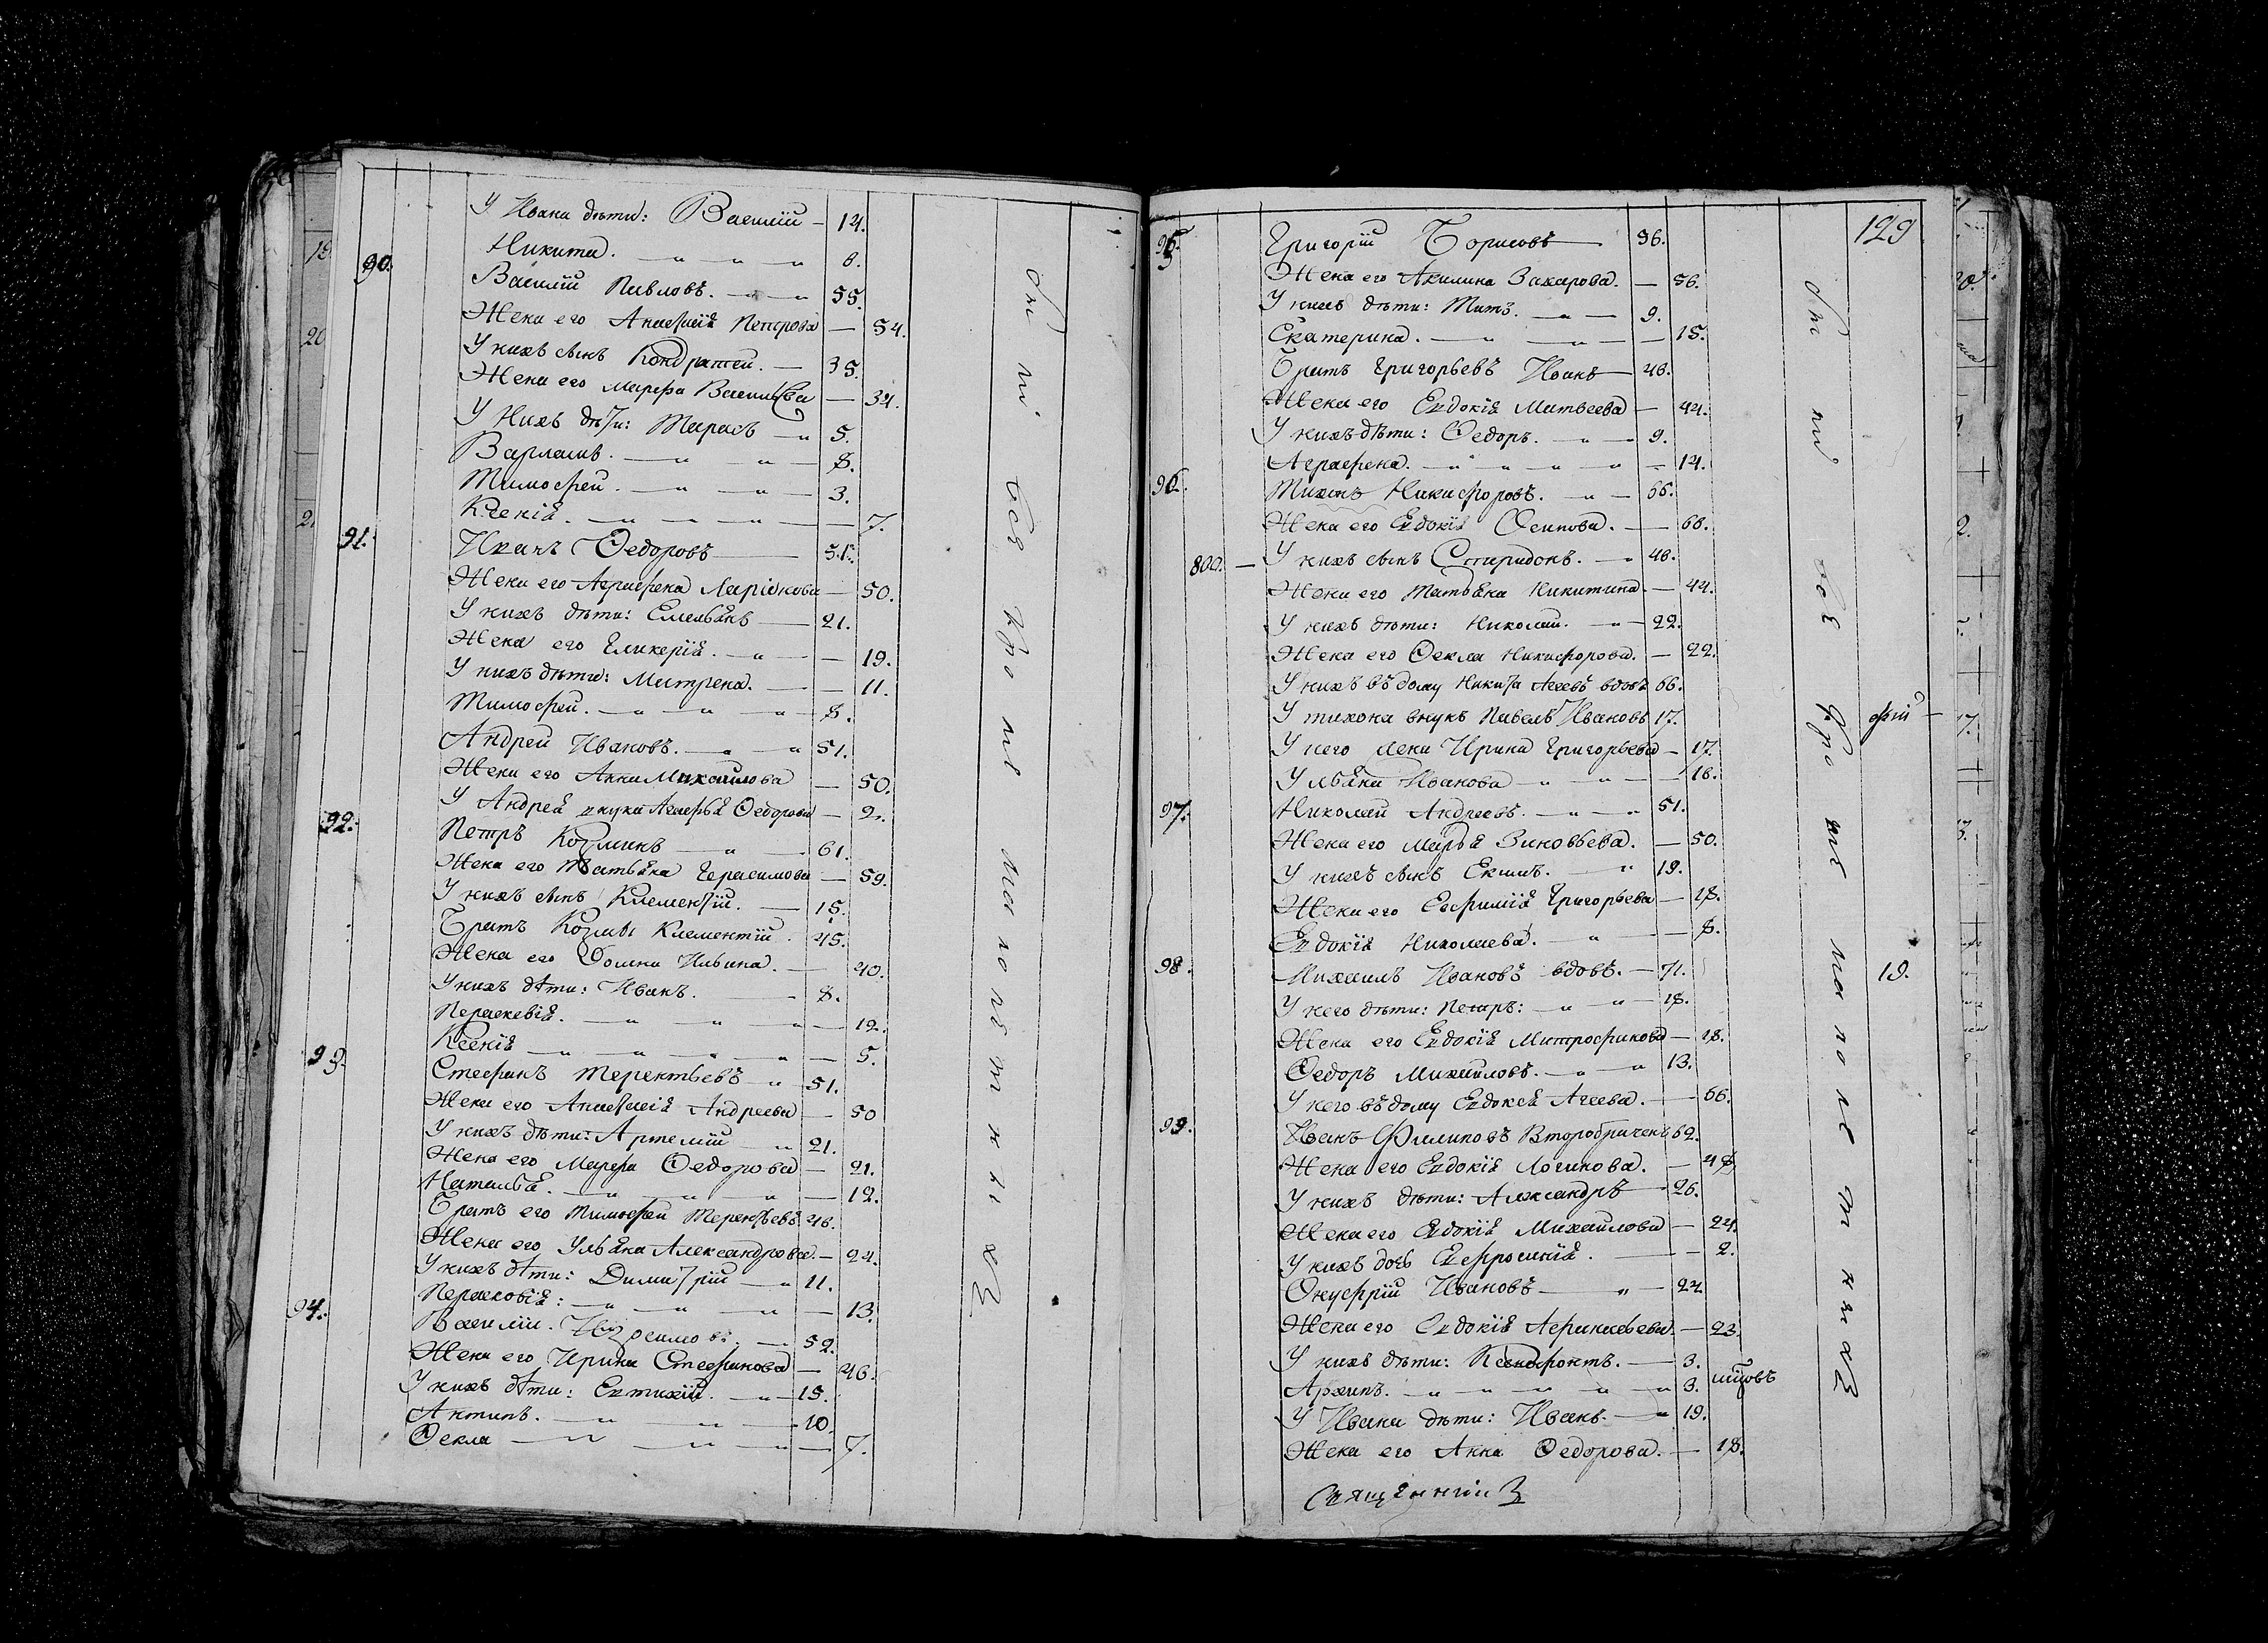 У Ивана дѣти: Василій — 14.
Никита. 8.
90. Василій Павловъ. 55.
Жена его Анастасія Петрова — 54.
У нихъ сынъ Кондратей. — 35.
Жена его Марѳа Васильева — 34.
У Нихъ дѣти: Тарасъ 5.
Варламъ. 8.
Тимофей. 3.
Ксенія. 7.
91. Иванъ Ѳедоровъ 51.
Жена его Аграфена Ларіонова — 50.
У нихъ дѣти: Емельянъ — 21.
Жена его Гликерія. 19.
У нихъ дѣти: Матрена. 11.
Тимофей. 8.
Андрей Ивановъ. 51.
Жена его Анна Михайлова — 50.
У Андрея внука Агафья Ѳедорова — 2.
92. Петръ Козминъ 61.
Жена его Татьяна Герасимова — 59.
У нихъ сынъ Климентій. — 15.
Братъ Козмы Климентій. 45.
Жена его Домна Ильина. 40.
У нихъ дѣти: Иванъ. 8.
Параскевія. 12.
Ксенія 5.
93. Стефанъ Терентьевъ 51.
Жена его Анастасія Андреева — 50
У нихъ дѣти: Артемій 21.
Жена его Марѳа Ѳедорова — 21.
Наталья. 12.
Братъ его Тимофей Терентьевъ 26.
Жена его Ульяна Александрова. — 24.
У нихъ дѣти: Димитрій 11.
Парасковія: 13.
94. Василій 52.
Жена его Ирина Стефанова — 46.
У нихъ дѣти: Евтихій. 15.
Антипъ. 10.
Ѳекла 7.
вся
129
95. Григорій Борисовъ 56.
Жена его Акилина Захарова. — 56.
У нихъ дѣти: Титъ. 9.
Екатерина. 15.
Братъ Григорьевъ Иванъ 48.
Жена его Евдокія Матвеева — 44.
У нихъ дѣти: Ѳедоръ. 9.
Аграфена. 14.
96. Тихонъ Никифоровъ. 66.
Жена его Евдокія Осипова. — 68.
800. — У нихъ сынъ Спиридонъ. 48.
Жена его Татьяна Никитина. — 44.
У нихъ дѣти: Николай. 22.
Жена его Ѳекла Никифорова. — 22.
У нихъ въ дому Никита Агеевъ вдовъ 66.
У тихона внукъ Павелъ Ивановъ 17.
У него жена Ирина Григорьева — 17.
Ульяна Иванова 16.
97. Николай Андреевъ. 51.
Жена его Марья Зиновьева. — 50.
У нихъ сынъ Екимъ. 19.
Жена его Евфимія Григорьева — 18.
Евдокія Николаева. 8.
98. Михаилъ Ивановъ вдовъ. — 71.
19.
У него дѣти: Петръ: 18.
Жена его Евдокія Митрофанова — 18.
Ѳедоръ Михайловъ. 13.
У него въ дому Евдокея Агеева. — 66.
99. Иванъ Филиповъ Второбраченъ 62.
Жена его Евдокія Логинова. — 48
У нихъ дѣти: Александръ 26.
Жена его Евдокія Михайлова — 24.
У нихъ дочь Евфросинія. 2.
Онуфрій Ивановъ 24
Жена его Евдокія — 23.
У нихъ дѣти: Ксенофонтъ. — 3.
Архипъ. 3.
У Ивана дѣти: Иванъ. 19.
Жена его Анна Ѳедорова. — 18.